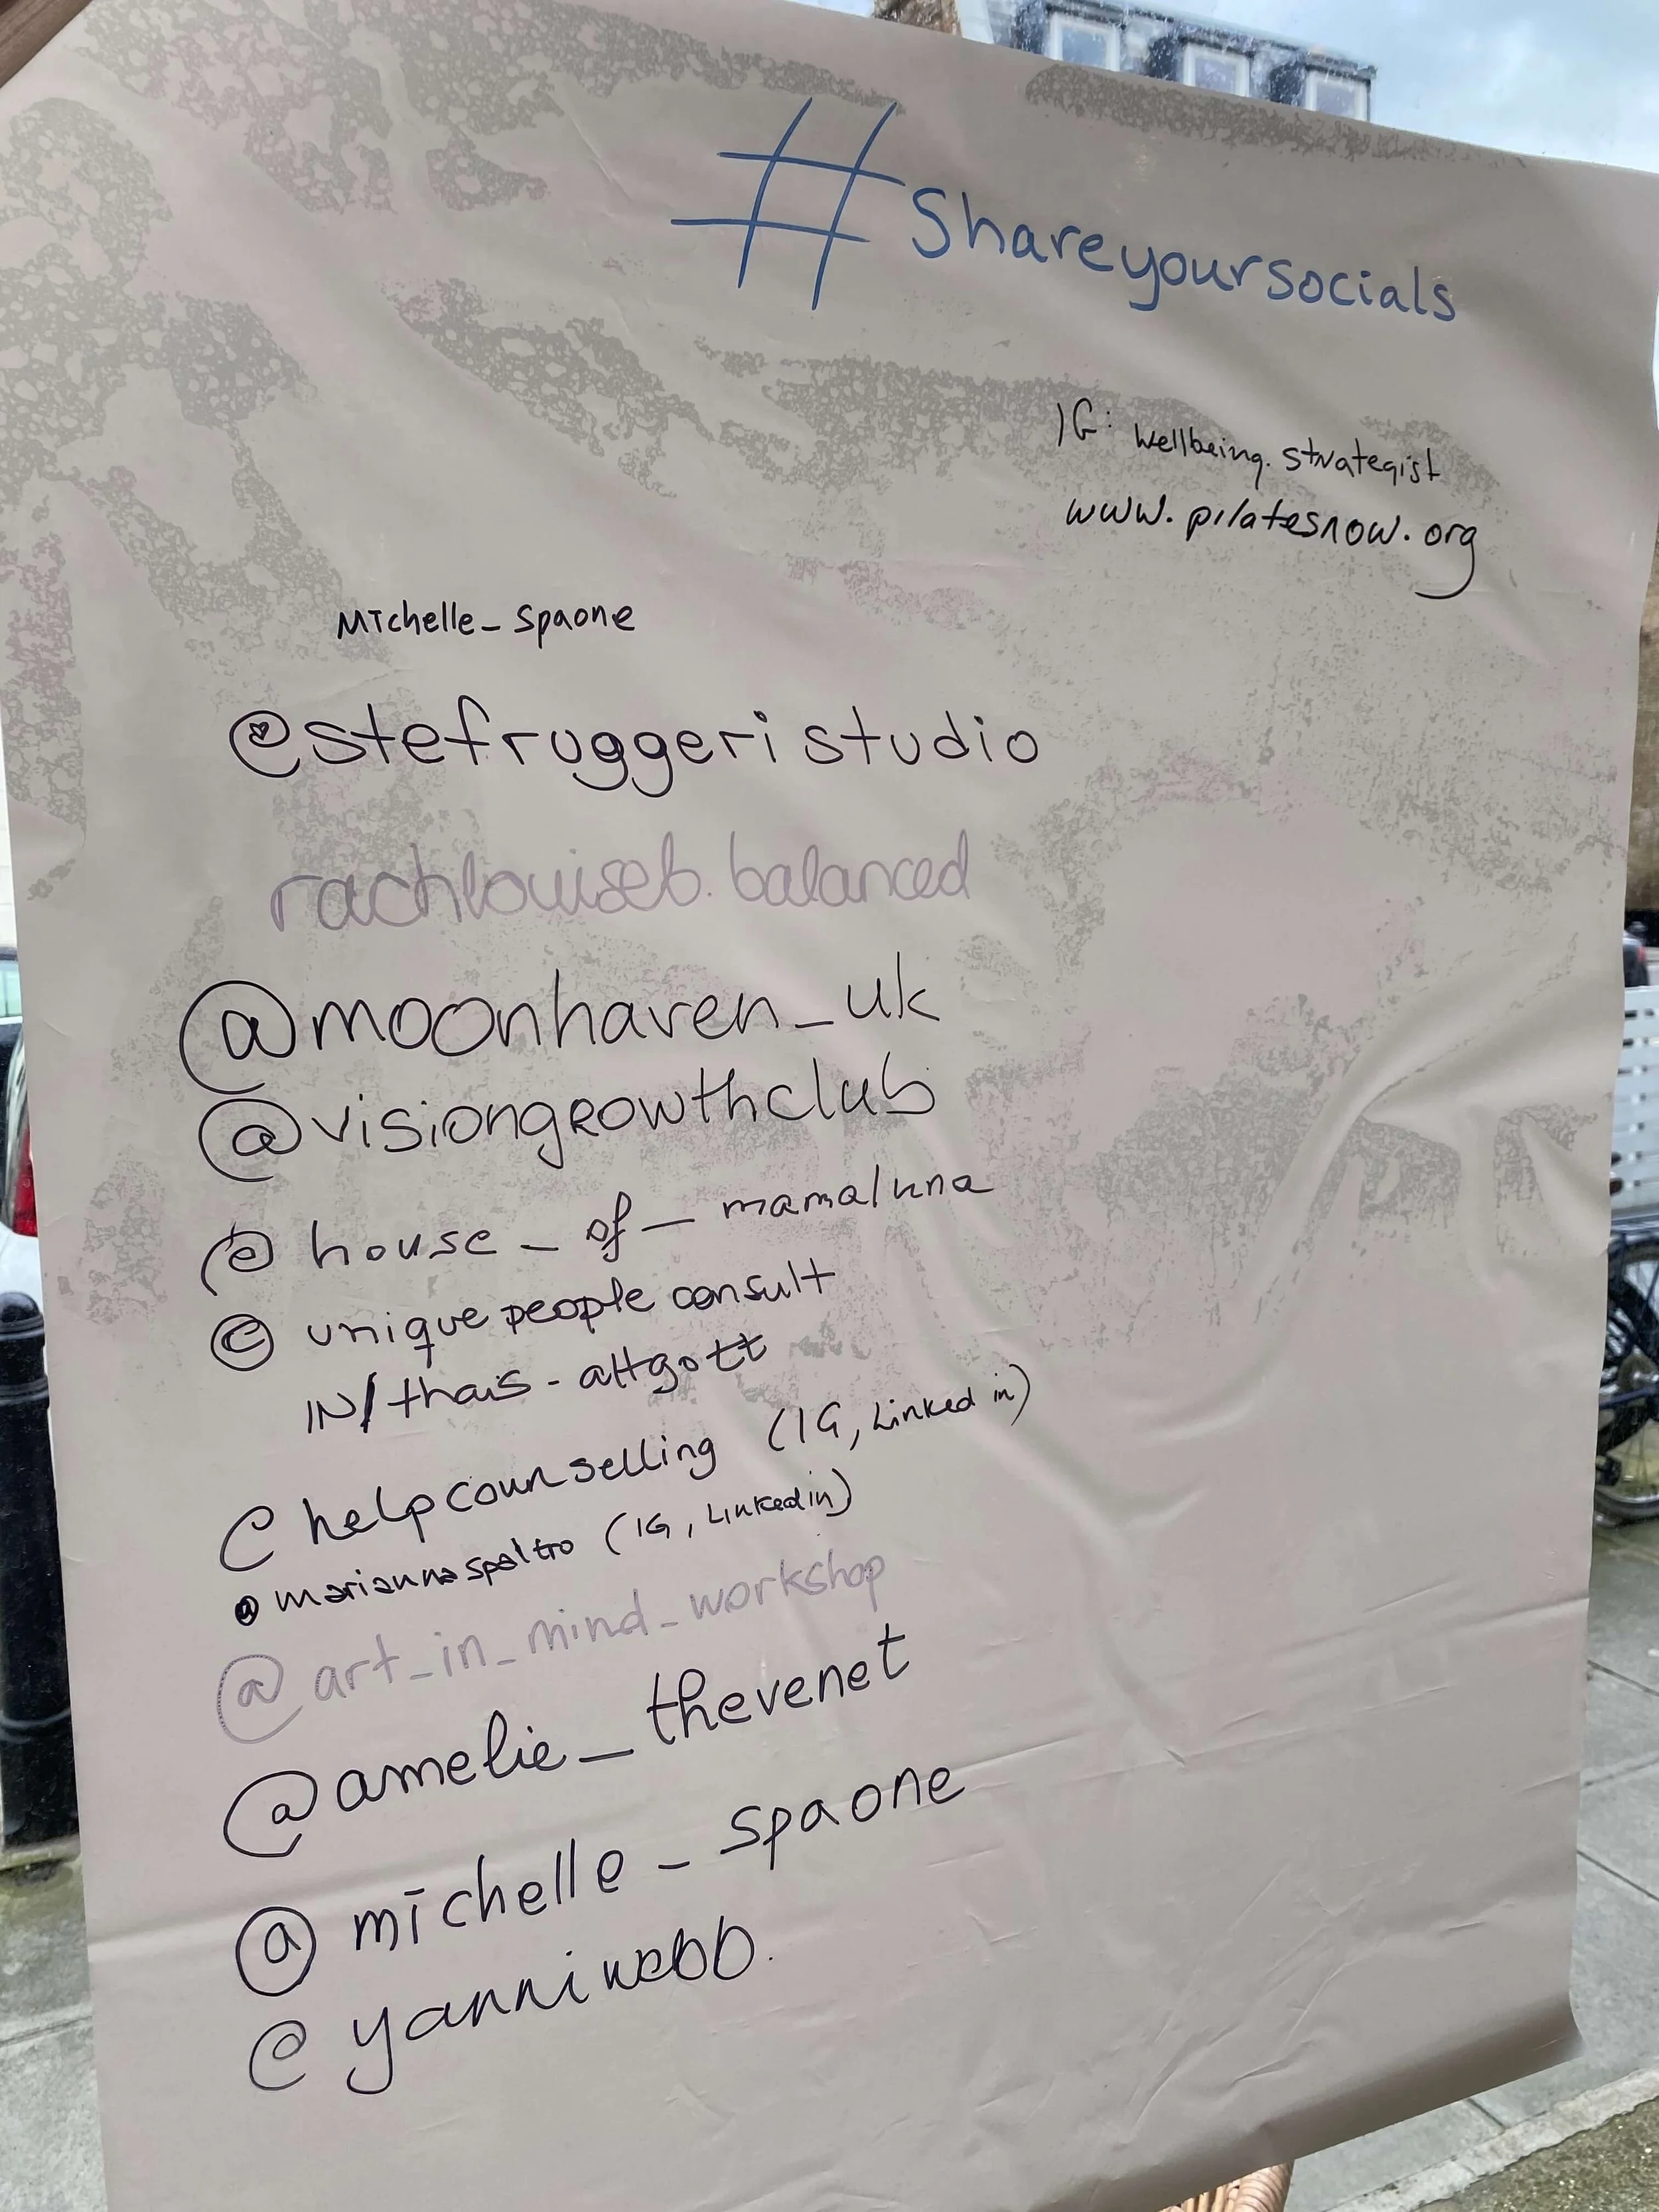 #Shareyoursocials
IG: wellbeing.strategist
www.pilatesnow.org
Michelle_spaone
@stefruggeristudio
rachlouiseb.balanced
@moonhaven_uk
@visiongrowthclub
@house_of_mamaluna
@uniquepeopleconsult
IN/thais-altgott
@helpcounselling (IG, Linked in)
@mariannaspaltro (IG, Linkedin)
@art_in_mind_workshop
@amelie_thevenet
@michelle_spaone
@yanniwebb.